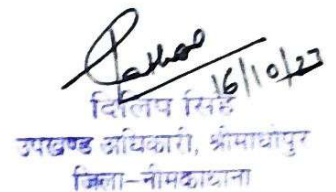 16/10/23
दिलिप सिंह
उपखण्ड अधिकारी, श्रीमाधोपुर
जिला-नीमकाथाना